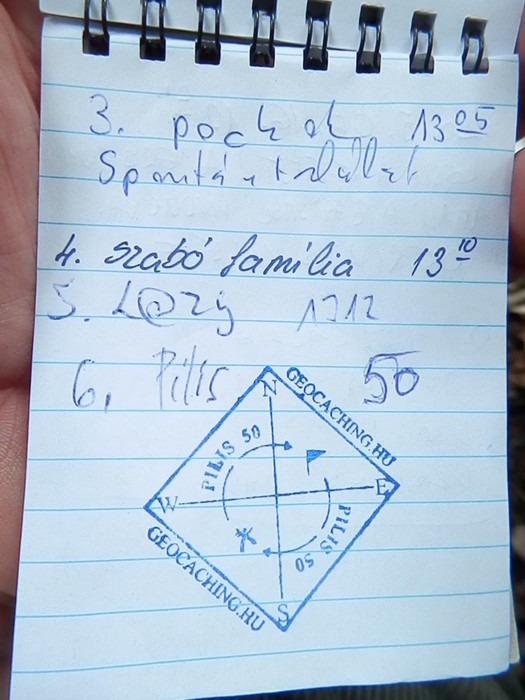 3. pockok 13 05
Spontá
4. szabó família 13 10
5. L@zy 1312
6. Pilis 50
N
GEOCACHING.HU
PILIS 50
W
E
PILIS 50
GEOCACHING.HU
S